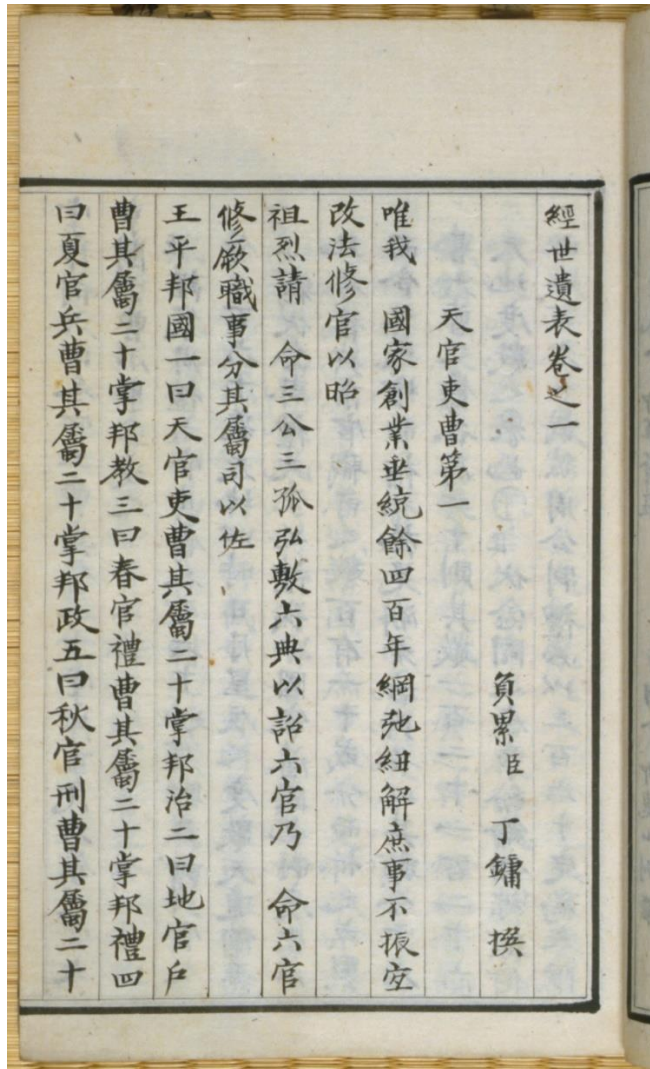 經世遺表卷之一
負累臣 丁鏞 撰
天官吏曹第一
唯我 國家創業垂統餘四百年綱弛紐解庶事不振宜
改法修官以昭
祖烈請 命三公三孤弘敷六典以詔六官乃 命六官
修厥職事分其屬司以佐
王平邦國一曰天官吏曹其屬二十掌邦治二曰地官戶
曹其屬二十掌邦教三曰春官禮曹其屬二十掌邦禮四
曰夏官兵曹其屬二十掌邦政五曰秋官刑曹其屬二十